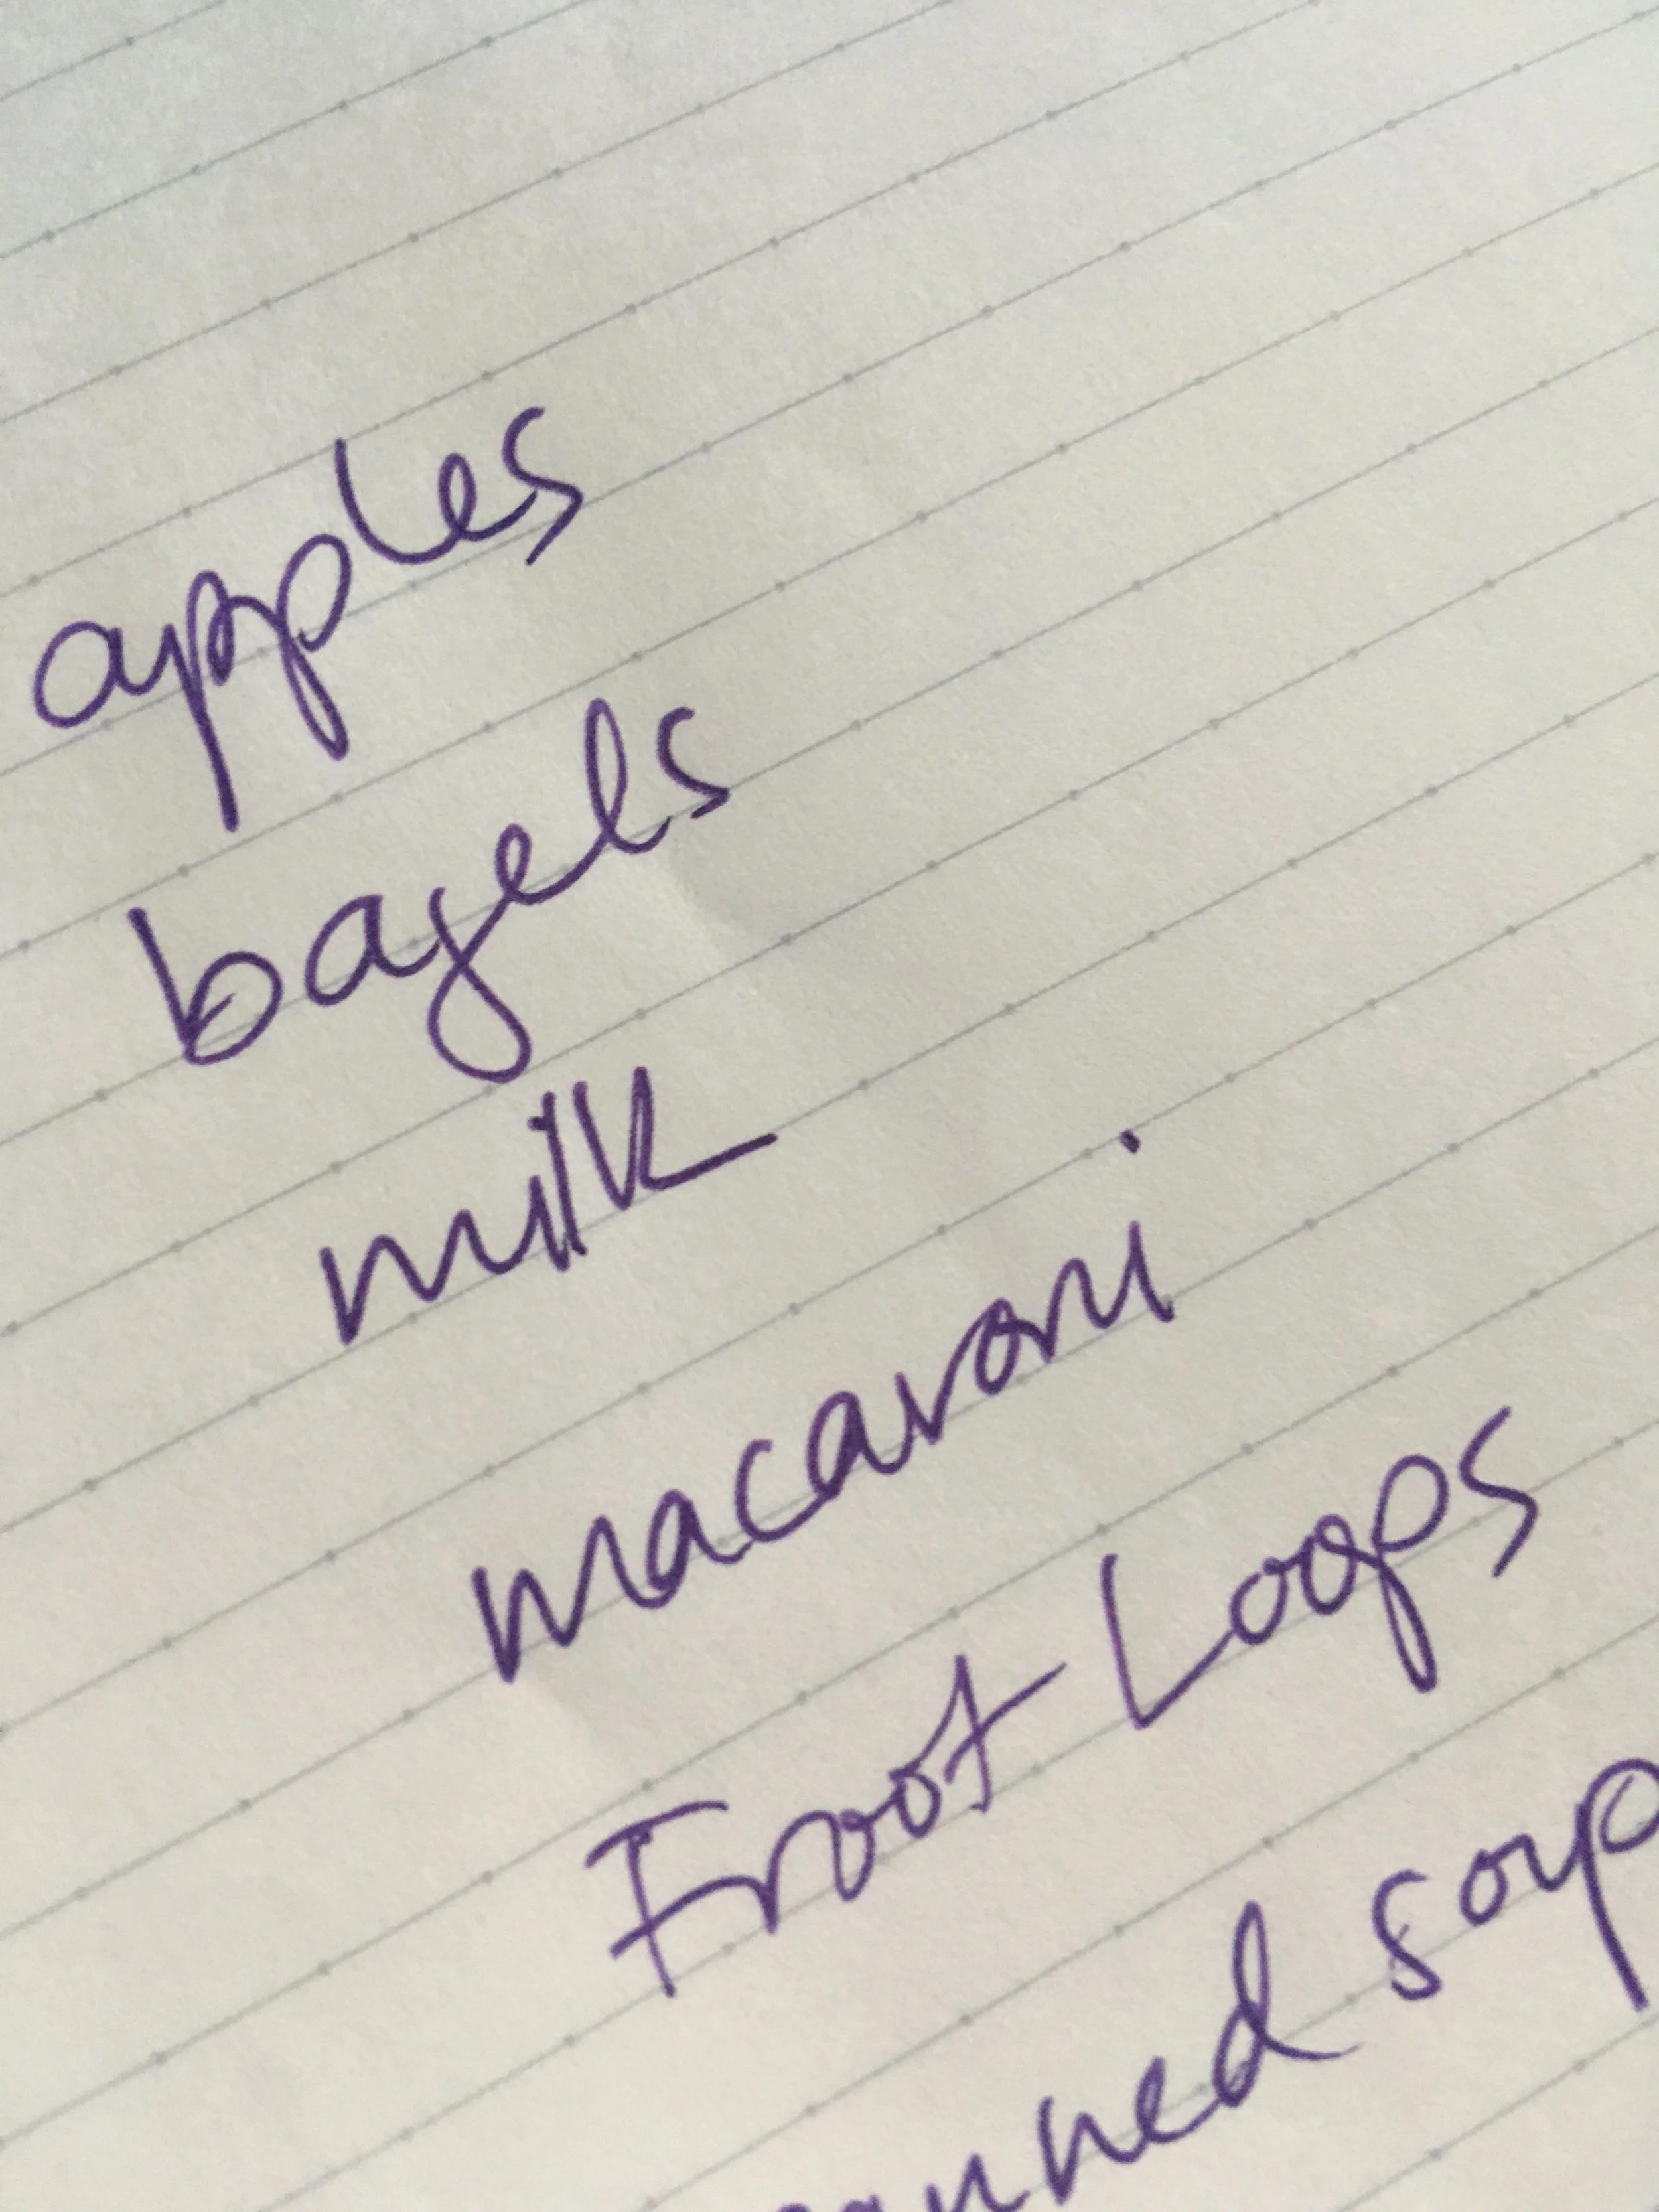 apples
bagels
milk
macaroni
Froot Loops
anned soup